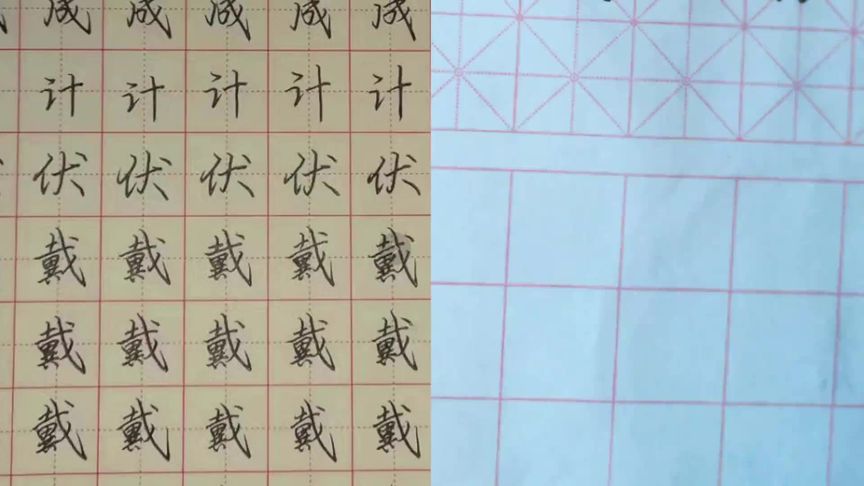 成 成 成 成 成
计 计 计 计 计
伏 伏 伏 伏 伏
戴 戴 戴 戴 戴
戴 戴 戴 戴 戴
戴 戴 戴 戴 戴